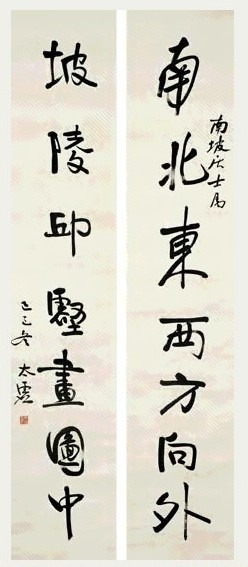 南北東西方向外
南坡居士属
坡陵邱壑畫圖中
太虛